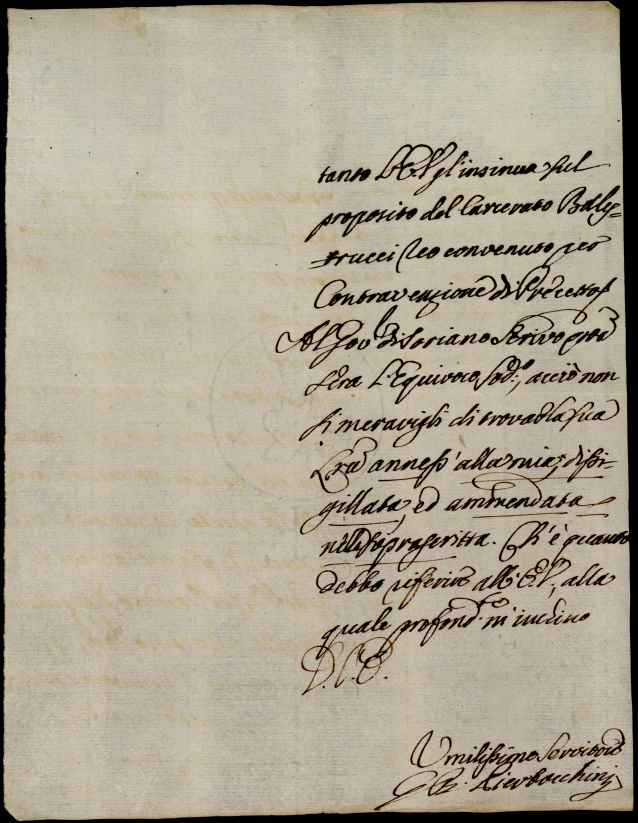 tanto l'E.V. gl'insinua sul
proposito del Carcerato Bales=
=trucci Reo convenuto per
Contravenzione di Precetto.
Al Gov.re di Soriano scrivo questa
sera l'Equivoco sod.o, acciò non
si meravigli di trovar la sua
Lr̃a anness' alla mia, dissi-
gillata, ed ammendata
nella soprascritta. Ch'è quanto
debbo riferire all'E.V., alla
quale profond.te m'inchino
D. V. E.
Umilissimo Servitore
G B. Pierbocchini